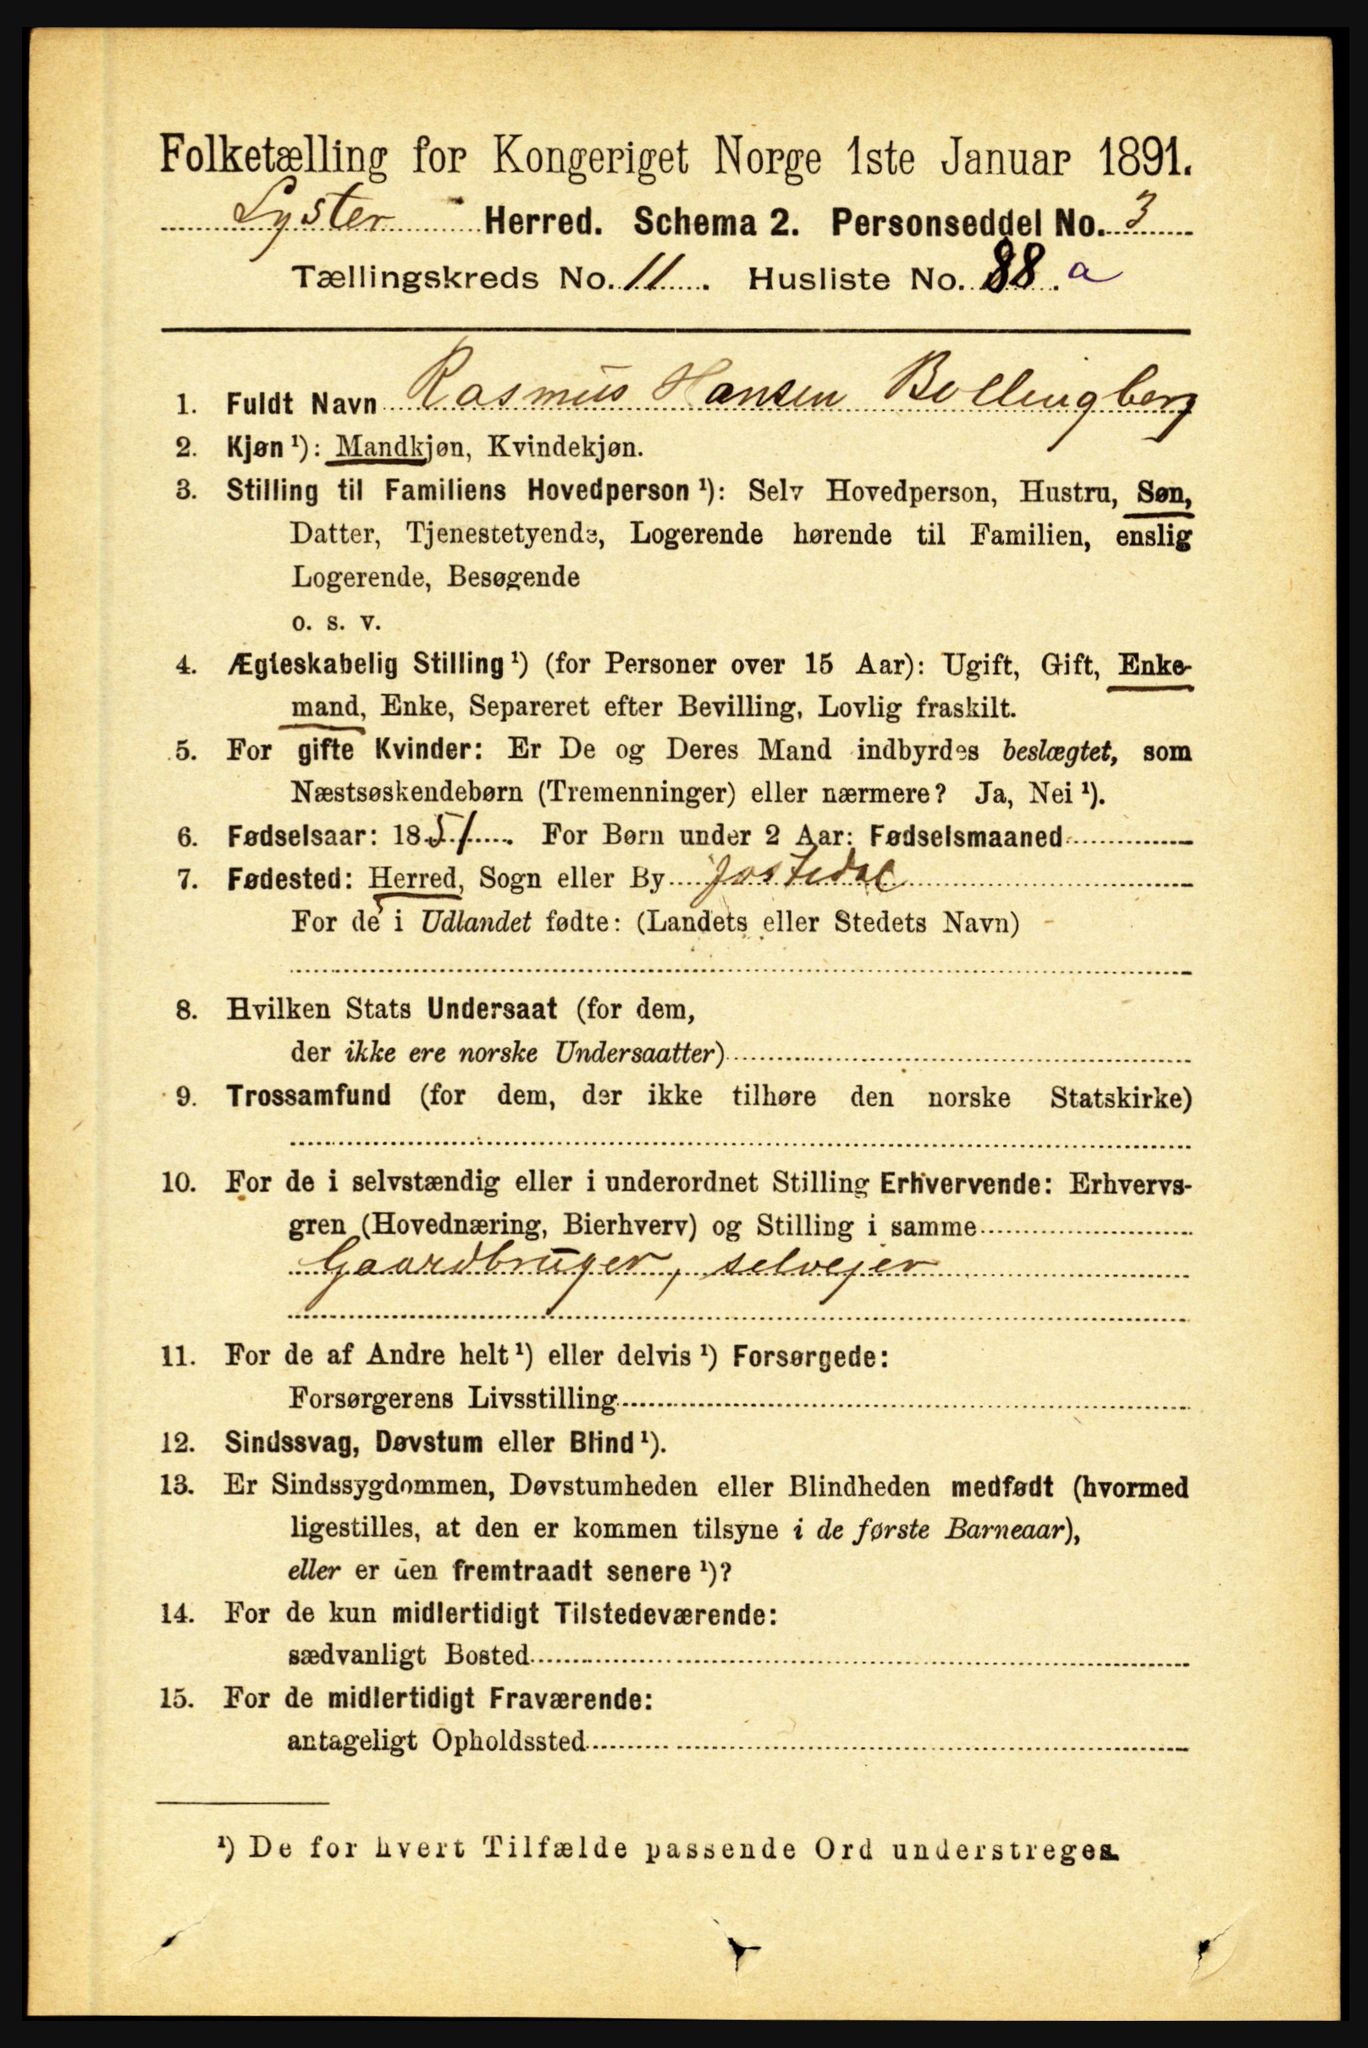 Folketælling for Kongeriget Norge 1ste Januar 1891.
Lyster Herred. Schema 2. Personseddel No. 3
Tællingskreds No. 11. Husliste No. 88.a
1. Fuldt Navn Rasmus Hansen Bollingberg
2. Kjøn ¹): Mandkjøn, Kvindekjøn.
3. Stilling til Familiens Hovedperson ¹): Selv Hovedperson, Hustru, Søn,
Datter, Tjenestetyende, Logerende hørende til Familien, enslig
Logerende, Besøgende
o. s. v.
4. Ægteskabelig Stilling ¹) (for Personer over 15 Aar): Ugift, Gift, Enke-
mand, Enke, Separeret efter Bevilling, Lovlig fraskilt.
5. For gifte Kvinder: Er De og Deres Mand indbyrdes beslægtet, som
Næstsøskendebørn (Tremenninger) eller nærmere? Ja, Nei ¹).
6. Fødselsaar: 1851. For Børn under 2 Aar: Fødselsmaaned
7. Fødested: Herred, Sogn eller By Jostedal
For de i Udlandet fødte: (Landets eller Stedets Navn)
8. Hvilken Stats Undersaat (for dem,
der ikke ere norske Undersaatter)
9. Trossamfund (for dem, der ikke tilhøre den norske Statskirke)
10. For de i selvstændig eller i underordnet Stilling Erhvervende: Erhvervs-
gren (Hovednæring, Bierhverv) og Stilling i samme
Gaardbruger, selvejer
11. For de af Andre helt ¹) eller delvis ¹) Forsørgede:
Forsørgerens Livsstilling
12. Sindssvag, Døvstum eller Blind ¹).
13. Er Sindssygdommen, Døvstumheden eller Blindheden medfødt (hvormed
ligestilles, at den er kommen tilsyne i de første Barneaar),
eller er den fremtraadt senere ¹)?
14. For de kun midlertidigt Tilstedeværende:
sædvanligt Bosted
15. For de midlertidigt Fraværende:
antageligt Opholdssted
¹) De for hvert Tilfælde passende Ord understreges.